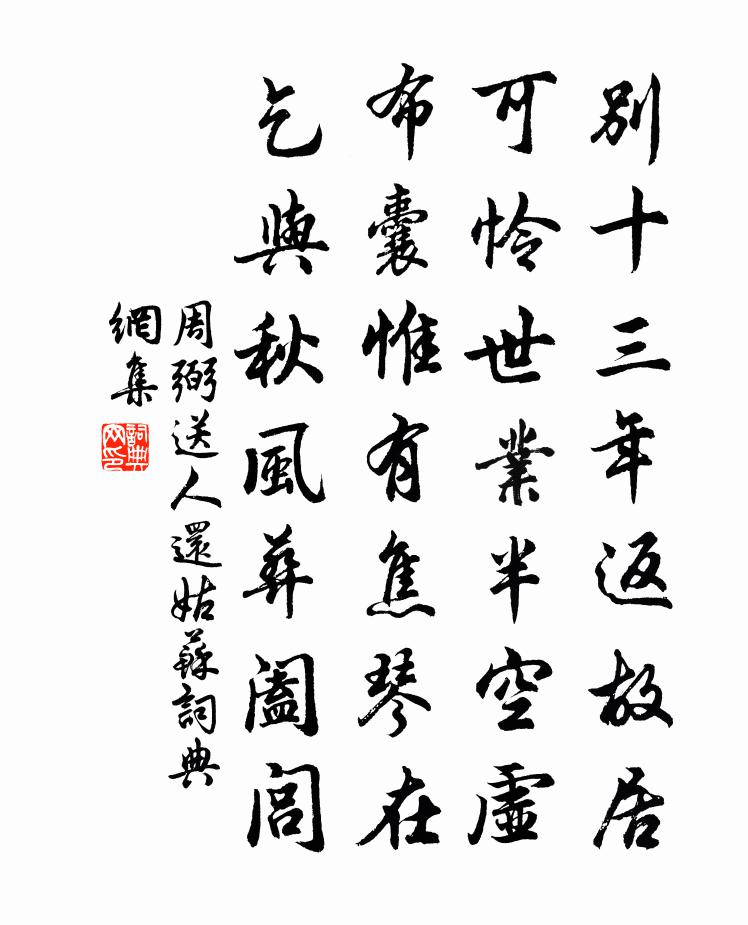 別十三年返故居
可怜世業半空虛
布囊惟有焦琴在
乞與秋風葬闔閭
周弼送人還姑蘇詞典
網集
詞典
网印